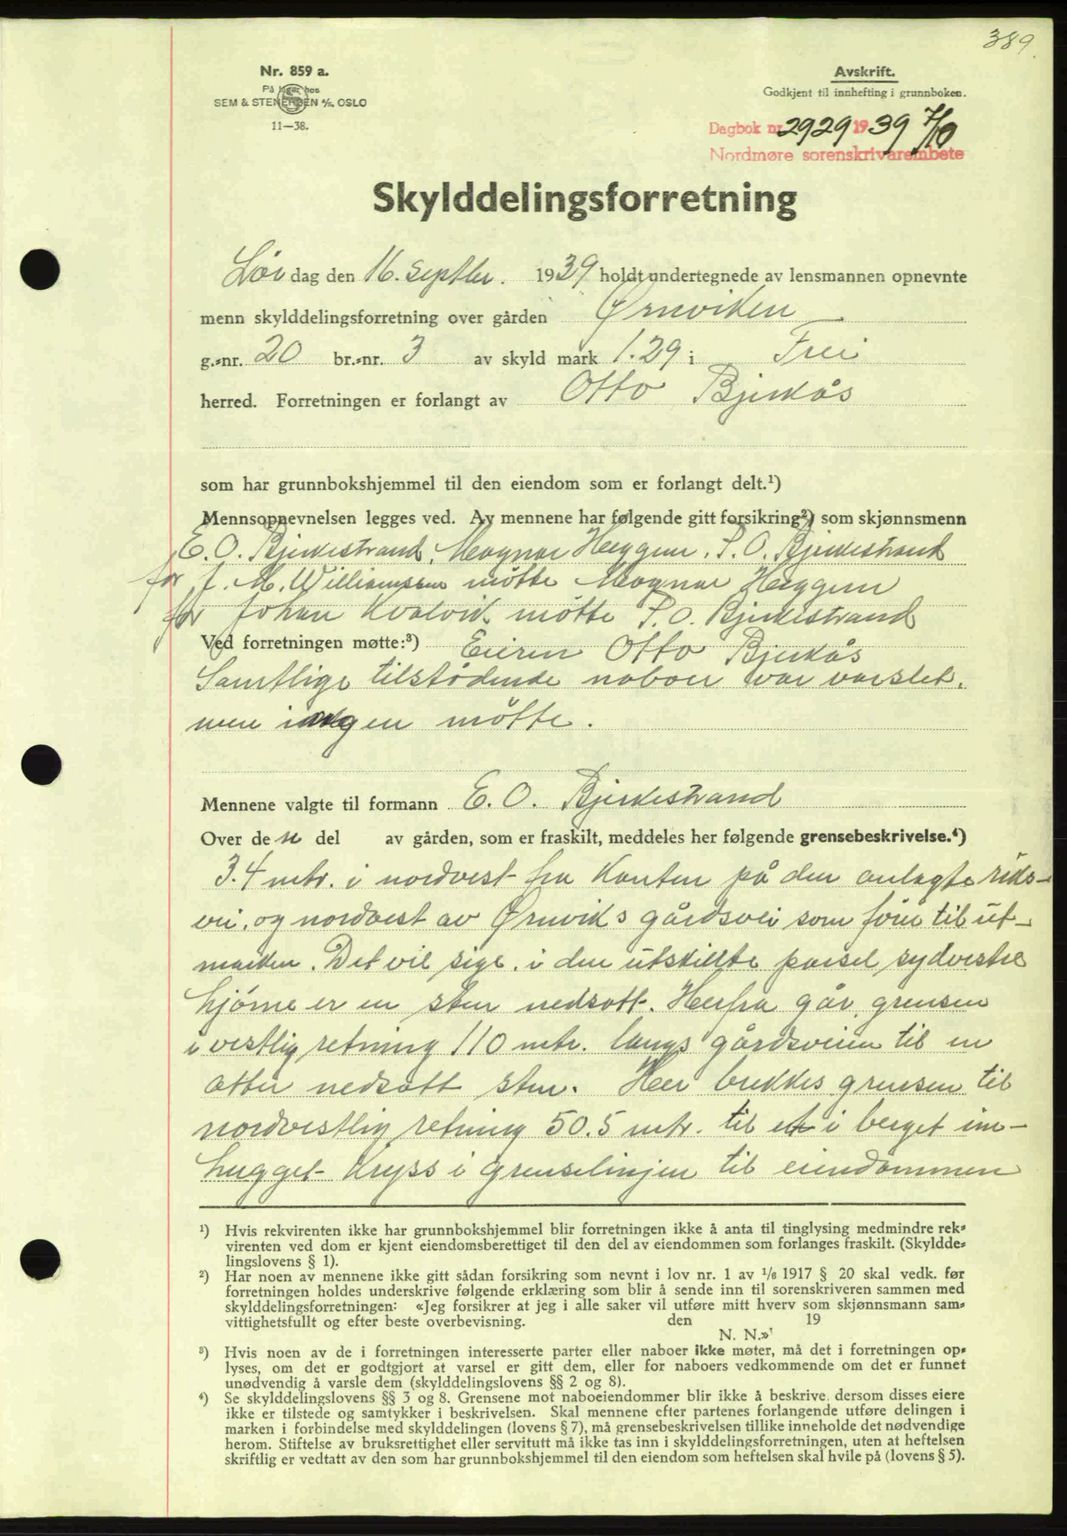 389
Nr. 859 a.
På lager hos
SEM & STENERSEN A/S, OSLO
11—38.
Avskrift.
Godkjent til innhefting i grunnboken.
Dagbok nr. 2929 1939 7/10
Nordmøre sorenskriverembete
Skylddelingsforretning
Lør dag den 16. septbr. 1939 holdt undertegnede av lensmannen opnevnte
menn skylddelingsforretning over gården Ørnviken
g.-nr. 20 br.-nr. 3 av skyld mark 1.29 i Frei
herred. Forretningen er forlangt av Otto Bjerkås
som har grunnbokshjemmel til den eiendom som er forlangt delt.¹)
Mennsopnevnelsen legges ved. Av mennene har følgende gitt forsikring²) som skjønnsmenn
E. O. Bjerkestrand, Magnar Heggem, P. O. Bjerkestrand
for J. M. Williamssen møtte Magnar Heggem
for Johan Kvalvik møtte P. O. Bjerkestrand
Ved forretningen møtte:³) Eieren Otto Bjerkås
Samtlige tilstødende naboer var varslet,
men ingen møtte.
Mennene valgte til formann E. O. Bjerkestrand
Over den del av gården, som er fraskilt, meddeles her følgende grensebeskrivelse.⁴)
3.4 mtr. i nordvest fra kanten på den anlagte riks-
vei, og nordvest av Ørnviks gårdsvei som fører til ut-
marken. Det vil sige, i den utskillte parsel sydvestre
hjørne er en sten nedsatt. Herfra går grensen
i vestlig retning 110 mtr. langs gårdsveien til en
atter nedsatt sten. Her bukkes grensen til
nordvestlig retning 50.5 mtr. til et i berget inn-
hugget kryss i grenselinjen til eiendommen
¹) Hvis rekvirenten ikke har grunnbokshjemmel blir forretningen ikke å anta til tinglysing medmindre rek-
virenten ved dom er kjent eiendomsberettiget til den del av eiendommen som forlanges fraskilt. (Skyldde-
lingslovens § 1).
²) Har noen av mennene ikke gitt sådan forsikring som nevnt i lov nr. 1 av 1/6 1917 § 20 skal vedk. før
forretningen holdes underskrive følgende erklæring som blir å sende inn til sorenskriveren sammen med
skylddelingsforretningen: «Jeg forsikrer at jeg i alle saker vil utføre mitt hverv som skjønnsmann sam-
vittighetsfullt og efter beste overbevisning. den 19
N. N.»
³) Hvis noen av de i forretningen interesserte parter eller naboer ikke møter, må det i forretningen op-
lyses, om det er godtgjort at varsel er gitt dem, eller for naboers vedkommende om det er funnet
unødvendig å varsle dem (skylddelingslovens §§ 2 og 8).
⁴) Se skylddelingslovens §§ 3 og 8. Grensene mot naboeiendommer blir ikke å beskrive dersom disses eiere
ikke er tilstede og samtykker i beskrivelsen. Skal mennene efter partenes forlangende utføre delingen i
marken i forbindelse med skylddelingen (lovens § 7), må grensebeskrivelsen tillike inneholde det nødvendige
herom. Stiftelse av bruksrettighet eller servitutt må ikke tas inn i skylddelingsforretningen, uten at heftelsen
skriftlig er vedtatt av den som har grunnbokshjemmel til den eiendom som heftelsen skal hvile på (lovens § 5).